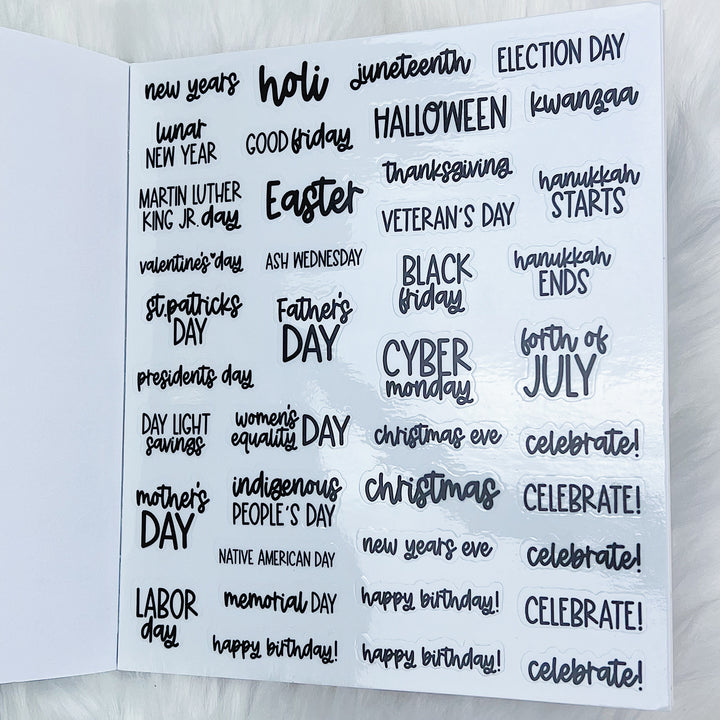 new years
holi
juneteenth
ELECTION DAY
lunar
NEW YEAR
GOOD friday
HALLOWEEN
kwanzaa
MARTIN LUTHER
KING JR. day
Easter
thanksgiving
VETERAN'S DAY
hanukkah
STARTS
valentine's day
ASH WEDNESDAY
BLACK
friday
hanukkah
ENDS
st.patricks
DAY
Father's
DAY
CYBER
monday
forth of
JULY
presidents day
DAY LIGHT
savings
women's
equality DAY
christmas eve
celebrate!
mother's
DAY
indigenous
PEOPLE'S DAY
christmas
CELEBRATE!
NATIVE AMERICAN DAY
new years eve
celebrate!
LABOR
day
memorial DAY
happy birthday!
CELEBRATE!
happy birthday!
happy birthday!
celebrate!